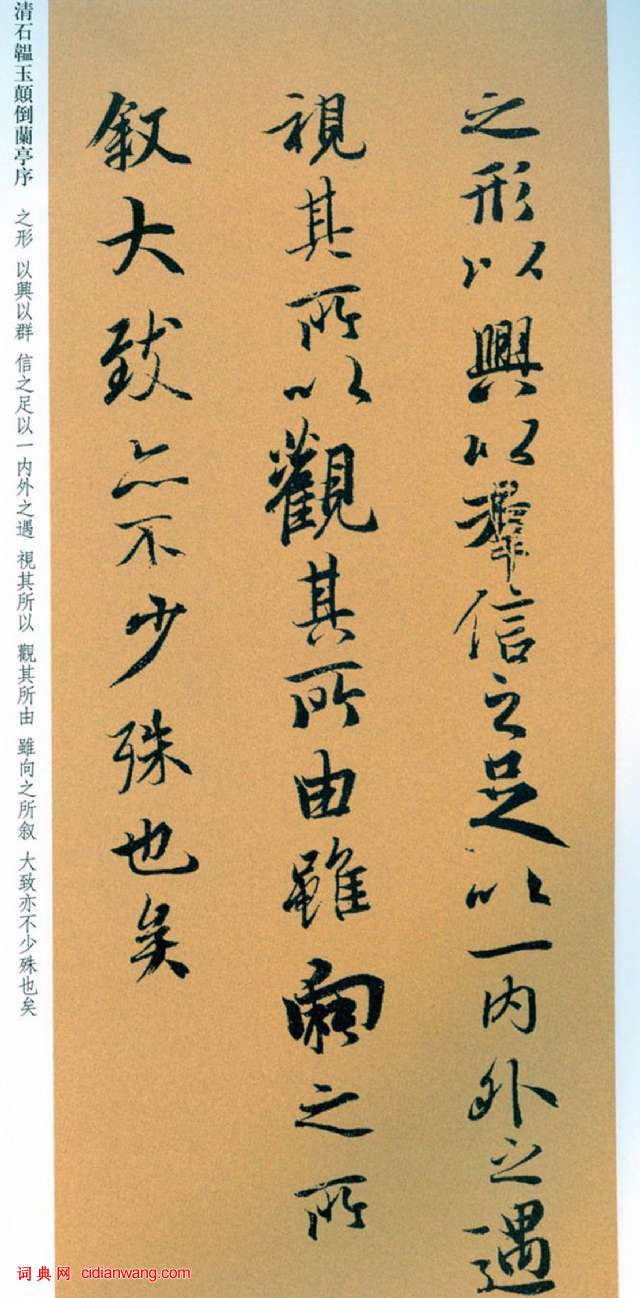 之形以興以羣信之足以一内外之遇
視其所以觀其所由雖向之所
叙大致亦不少殊也矣
清石韞玉顛倒蘭亭序 之形 以興以群 信之足以一内外之遇 視其所以 觀其所由 雖向之所叙 大致亦不少殊也矣
词典网 cidianwang.com